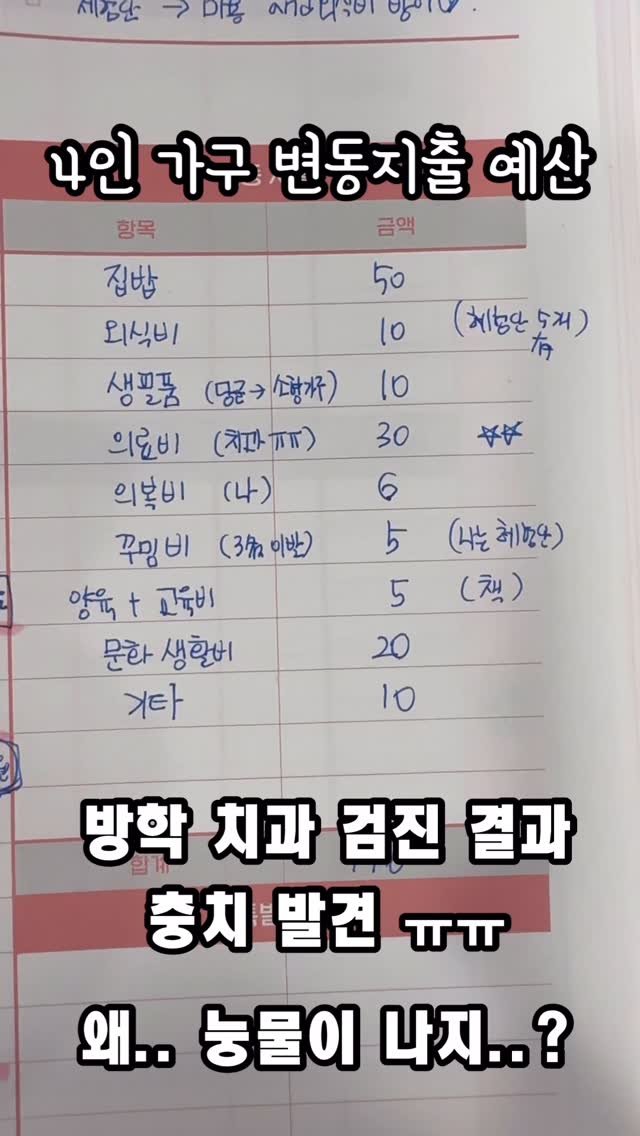 체험단 →
4인 가구 변동지출 예산
항목 금액
집밥 50
외식비 10 (체험단 5개)
생필품 (당근→ 소형가구) 10
의료비 (치과 ㅠㅠ) 30
의복비 (나) 6
꾸밈비 (3명 이발) 5 (나는 체험단)
양육 + 교육비 5 (책)
문화 생활비 20
기타 10
방학 치과 검진 결과
합계
충치 발견 ㅠㅠ
왜.. 눙물이 나지..?